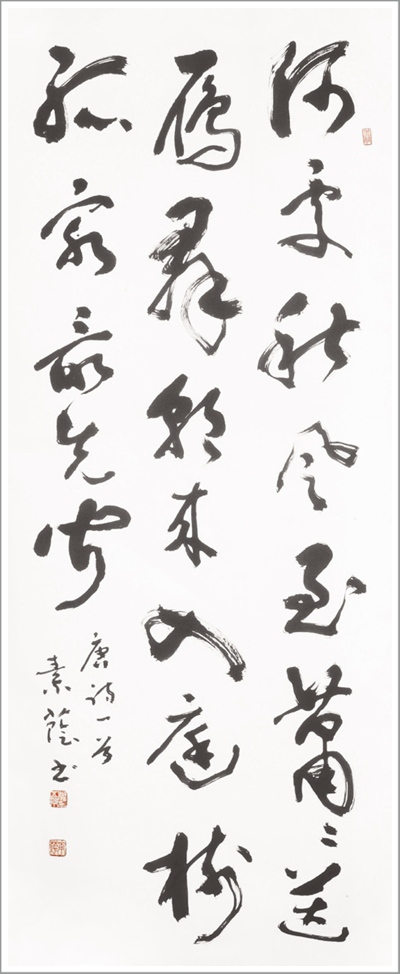 何處秋風至蕭〻送
雁羣朝来入庭樹
孤客最先聞
唐詩一首
素蔭书